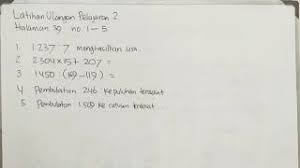 Latihan Ulangan Pelajaran 2
Halaman 39 no 1-5
1 1237 7 menghasilkan sisa
2 2304 × 15 + 207 =
3 1450 (119-119) =
4 Pembulatan 246 kepuluhan terdekat
5 Pembulatan 1.509 ke ratusan terdekat